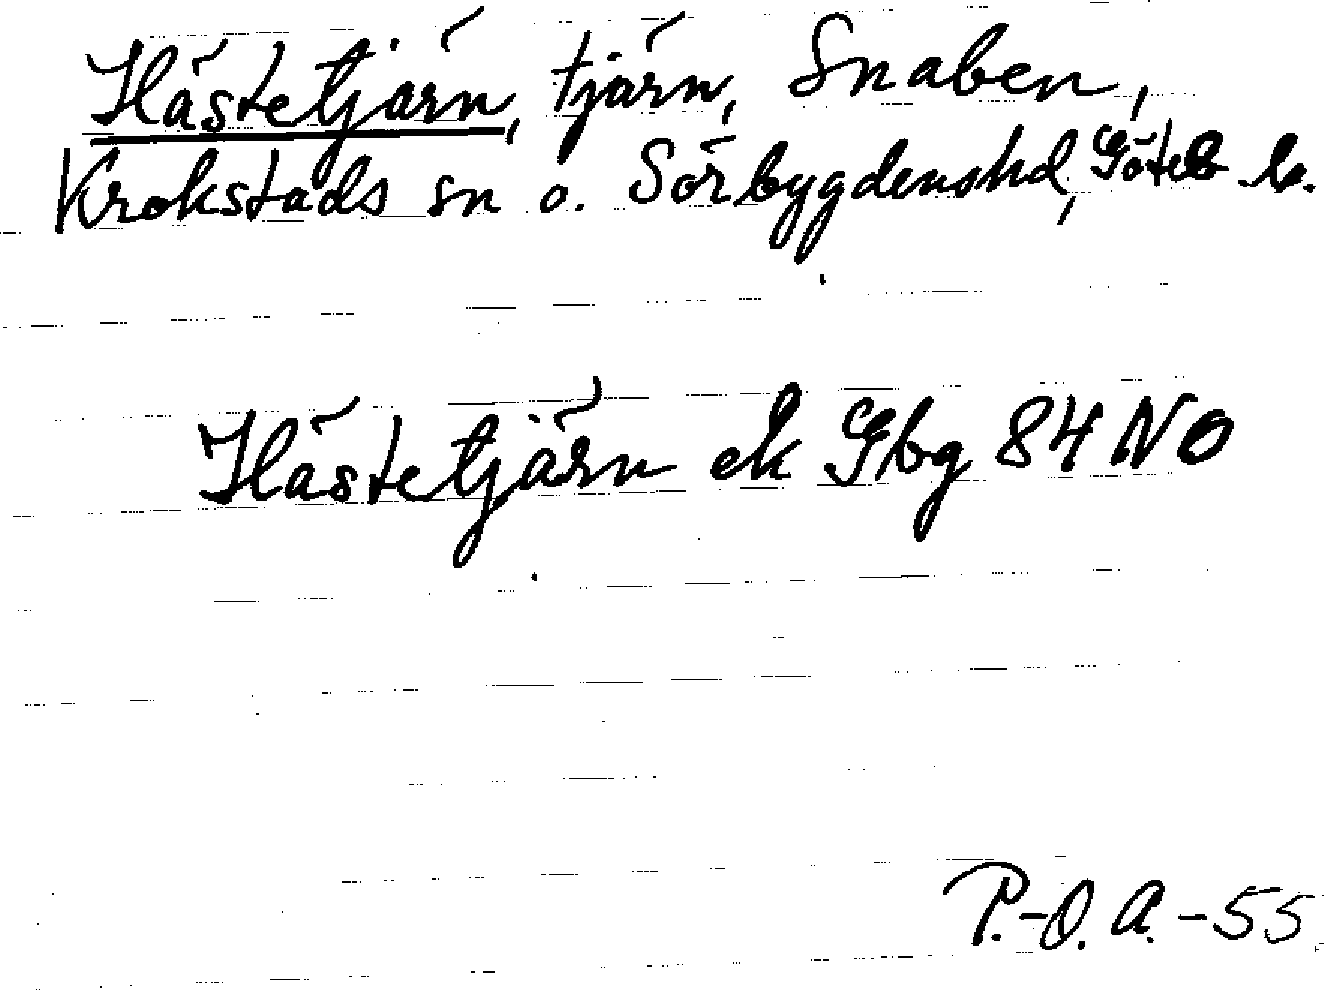 Hästetjärn, tjärn, Snaben,
Krokstads sn o. Sörbygdens hd, Göteb. l.
Hästetjärn ek Gbg 84 NO
P.-O. A. -55